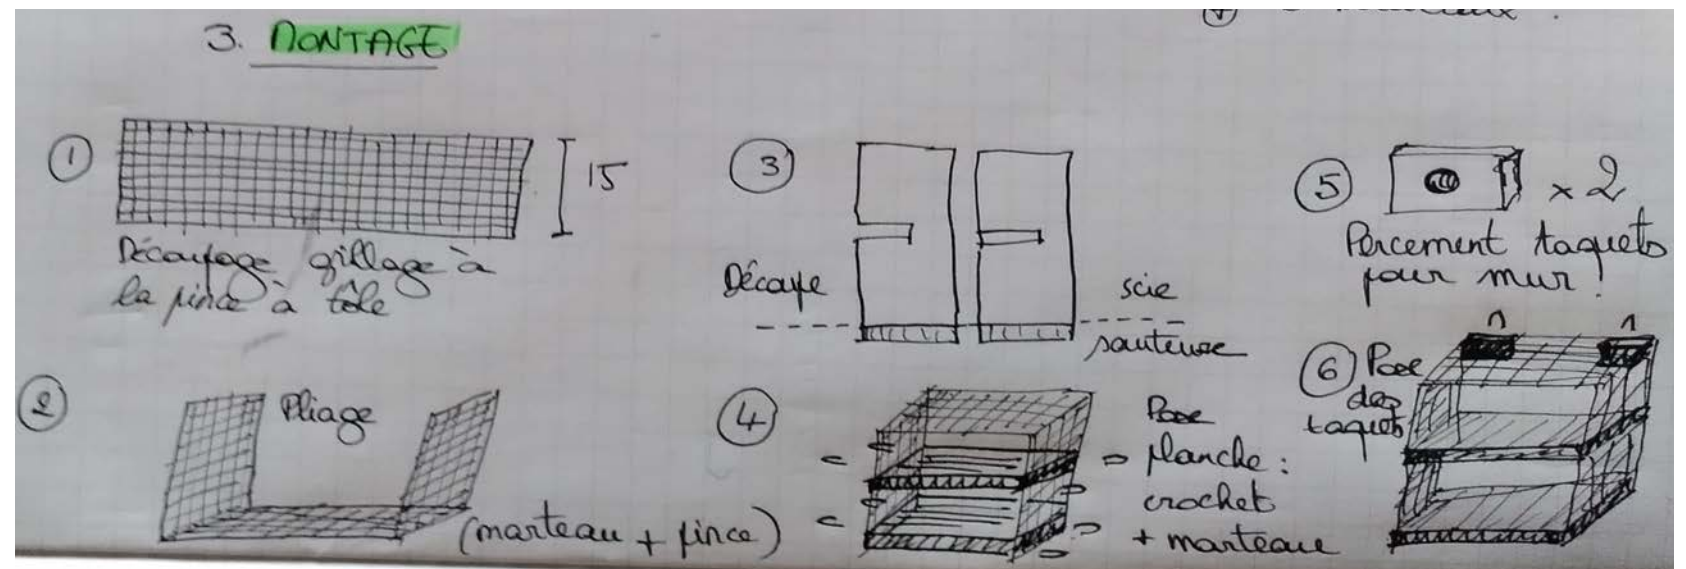 3. MONTAGE
1
15
Découpage grillage à
la pince à tôle
2
Pliage
(marteau + pince)
3
Découpe
scie
sauteuse
4
Pose
planche :
crochet
+ marteau
5
x 2
Percement taquets
pour mur !
6 Pose
des
taquets